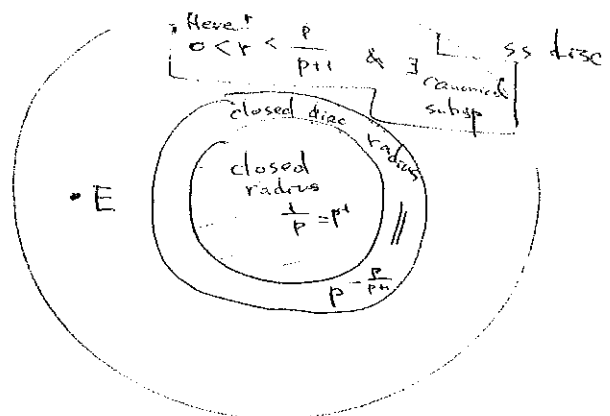 Here!
0 < r < p/p+1 & ∃ canonical subgp
ss disc
closed disc radius
closed radius
1/p = p⁻¹
• E
p^-p/p+1